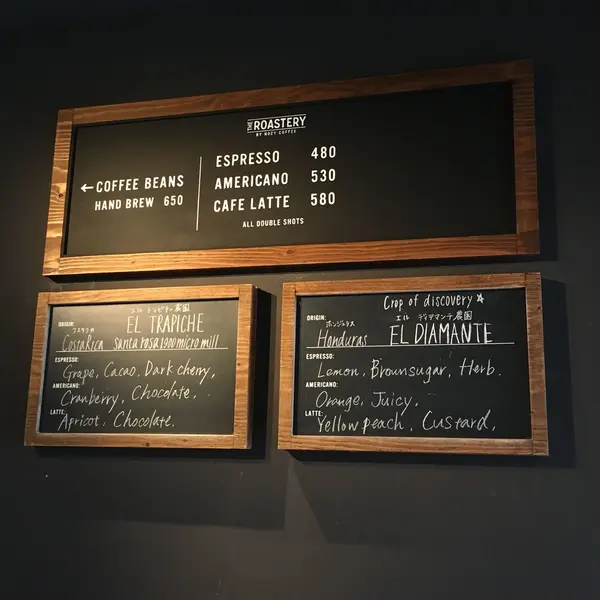 THE ROASTERY
BY NOZY COFFEE
←COFFEE BEANS
HAND BREW 650
ESPRESSO 480
AMERICANO 530
CAFE LATTE 580
ALL DOUBLE SHOTS
エル トラピチェ 農園
ORIGIN: コスタリカ EL TRAPICHE
CostaRica santa rosa 1900 micro mill
ESPRESSO:
Grape, Cacao, Dark cherry,
AMERICANO:
Cranberry, Chocolate,
LATTE:
Apricot, Chocolate.
Crop of discovery☆
ORIGIN: ホンジュラス エル ディアマンテ 農園
Honduras EL DIAMANTE
ESPRESSO:
Lemon, Brownsugar, Herb.
AMERICANO:
Orange, Juicy,
LATTE:
Yellow peach, Custard,